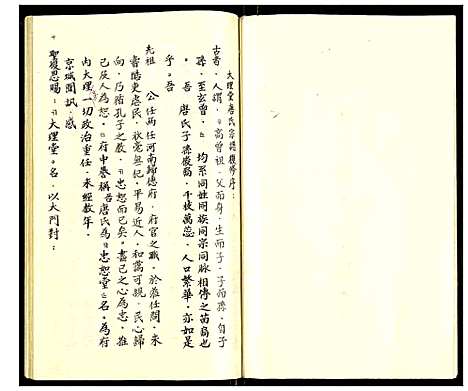 大理堂唐氏宗譜復修序：
古者，人謂：「高曾祖，父而身，生而子，子而孫，自子
孫，至玄曾，」均系同姓同族同宗同脈相傳之苗裔也
。吾 唐氏子孫後裔，千枝萬蕊，人口繁華，亦如是
乎。吾
先祖 公任兩任河南歸德府，府官之職，於蒞任間，未
嘗皓東虐民，秋毫無犯，平易近人，和藹可親，民心歸
向，乃循孔子之教，「忠恕而已矣。盡己之心為忠，推
己及人為恕。」府中譽稱唐氏為「忠恕堂」名。為府
內大理一切政治重任，未經數年。
京城聞訊，感
聖復恩賜：「大理堂」名，以大門封：